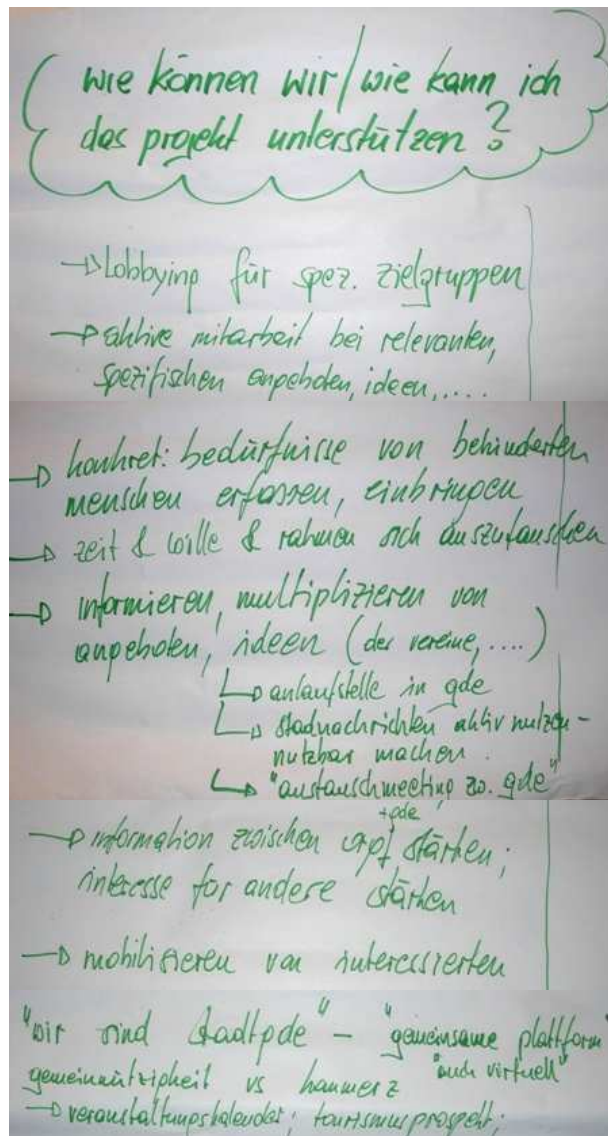 wie können wir/wie kann ich
das projekt unterstützen?
→ Lobbying für spez. zielgruppen
→ aktive mitarbeit bei relevanten,
spezifischen angeboten, ideen,....
→ konkret: bedürfnisse von behinderten
menschen erfassen, einbringen
→ zeit & wille & rahmen sich auszutauschen
→ informieren, multiplizieren von
angeboten, ideen (der vereine,....)
↳ anlaufstelle in gde
↳ stadnachrichten aktiv nutzen-
nutzbar machen
↳ "austauschmeeting zw. gde"
+gde
→ information zwischen stärken;
interesse für andere stärken
→ mobilisieren von interessierten
"wir sind stadtgde" – "gemeinsame plattform"
"auch virtuell"
gemeinnützigkeit vs kommerz
→ veranstaltungskalender; tourismusprospekt;